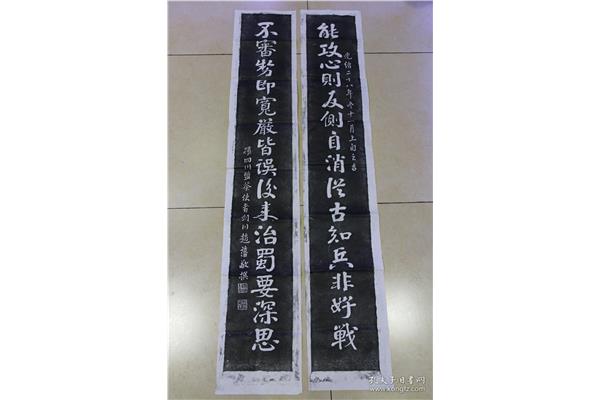 能攻心則反側自消從古知兵非好戰
光緒二十八年冬十一月上旬之吉
不審勢即寬嚴皆誤後來治蜀要深思
攝四川鹽茶使者劍川趙藩敬撰
孔夫子旧书网
www.kongfz.com